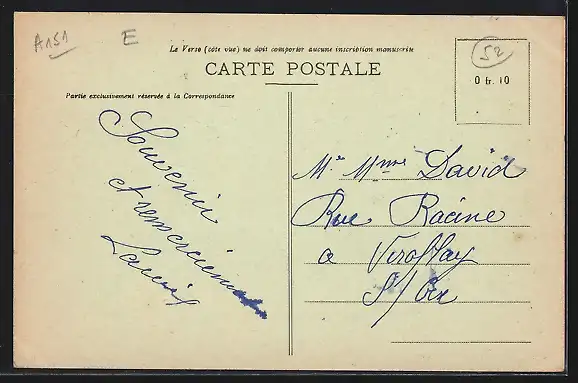 A151
E
52
Le Verso (côté vue) ne doit comporter aucune inscription manuscrite
CARTE POSTALE
0 fr. 10
Partie exclusivement réservée à la Correspondance
Souvenir
et remerciements
Mr Mme David
Rue Racine
a Viroflay
S/ Oise